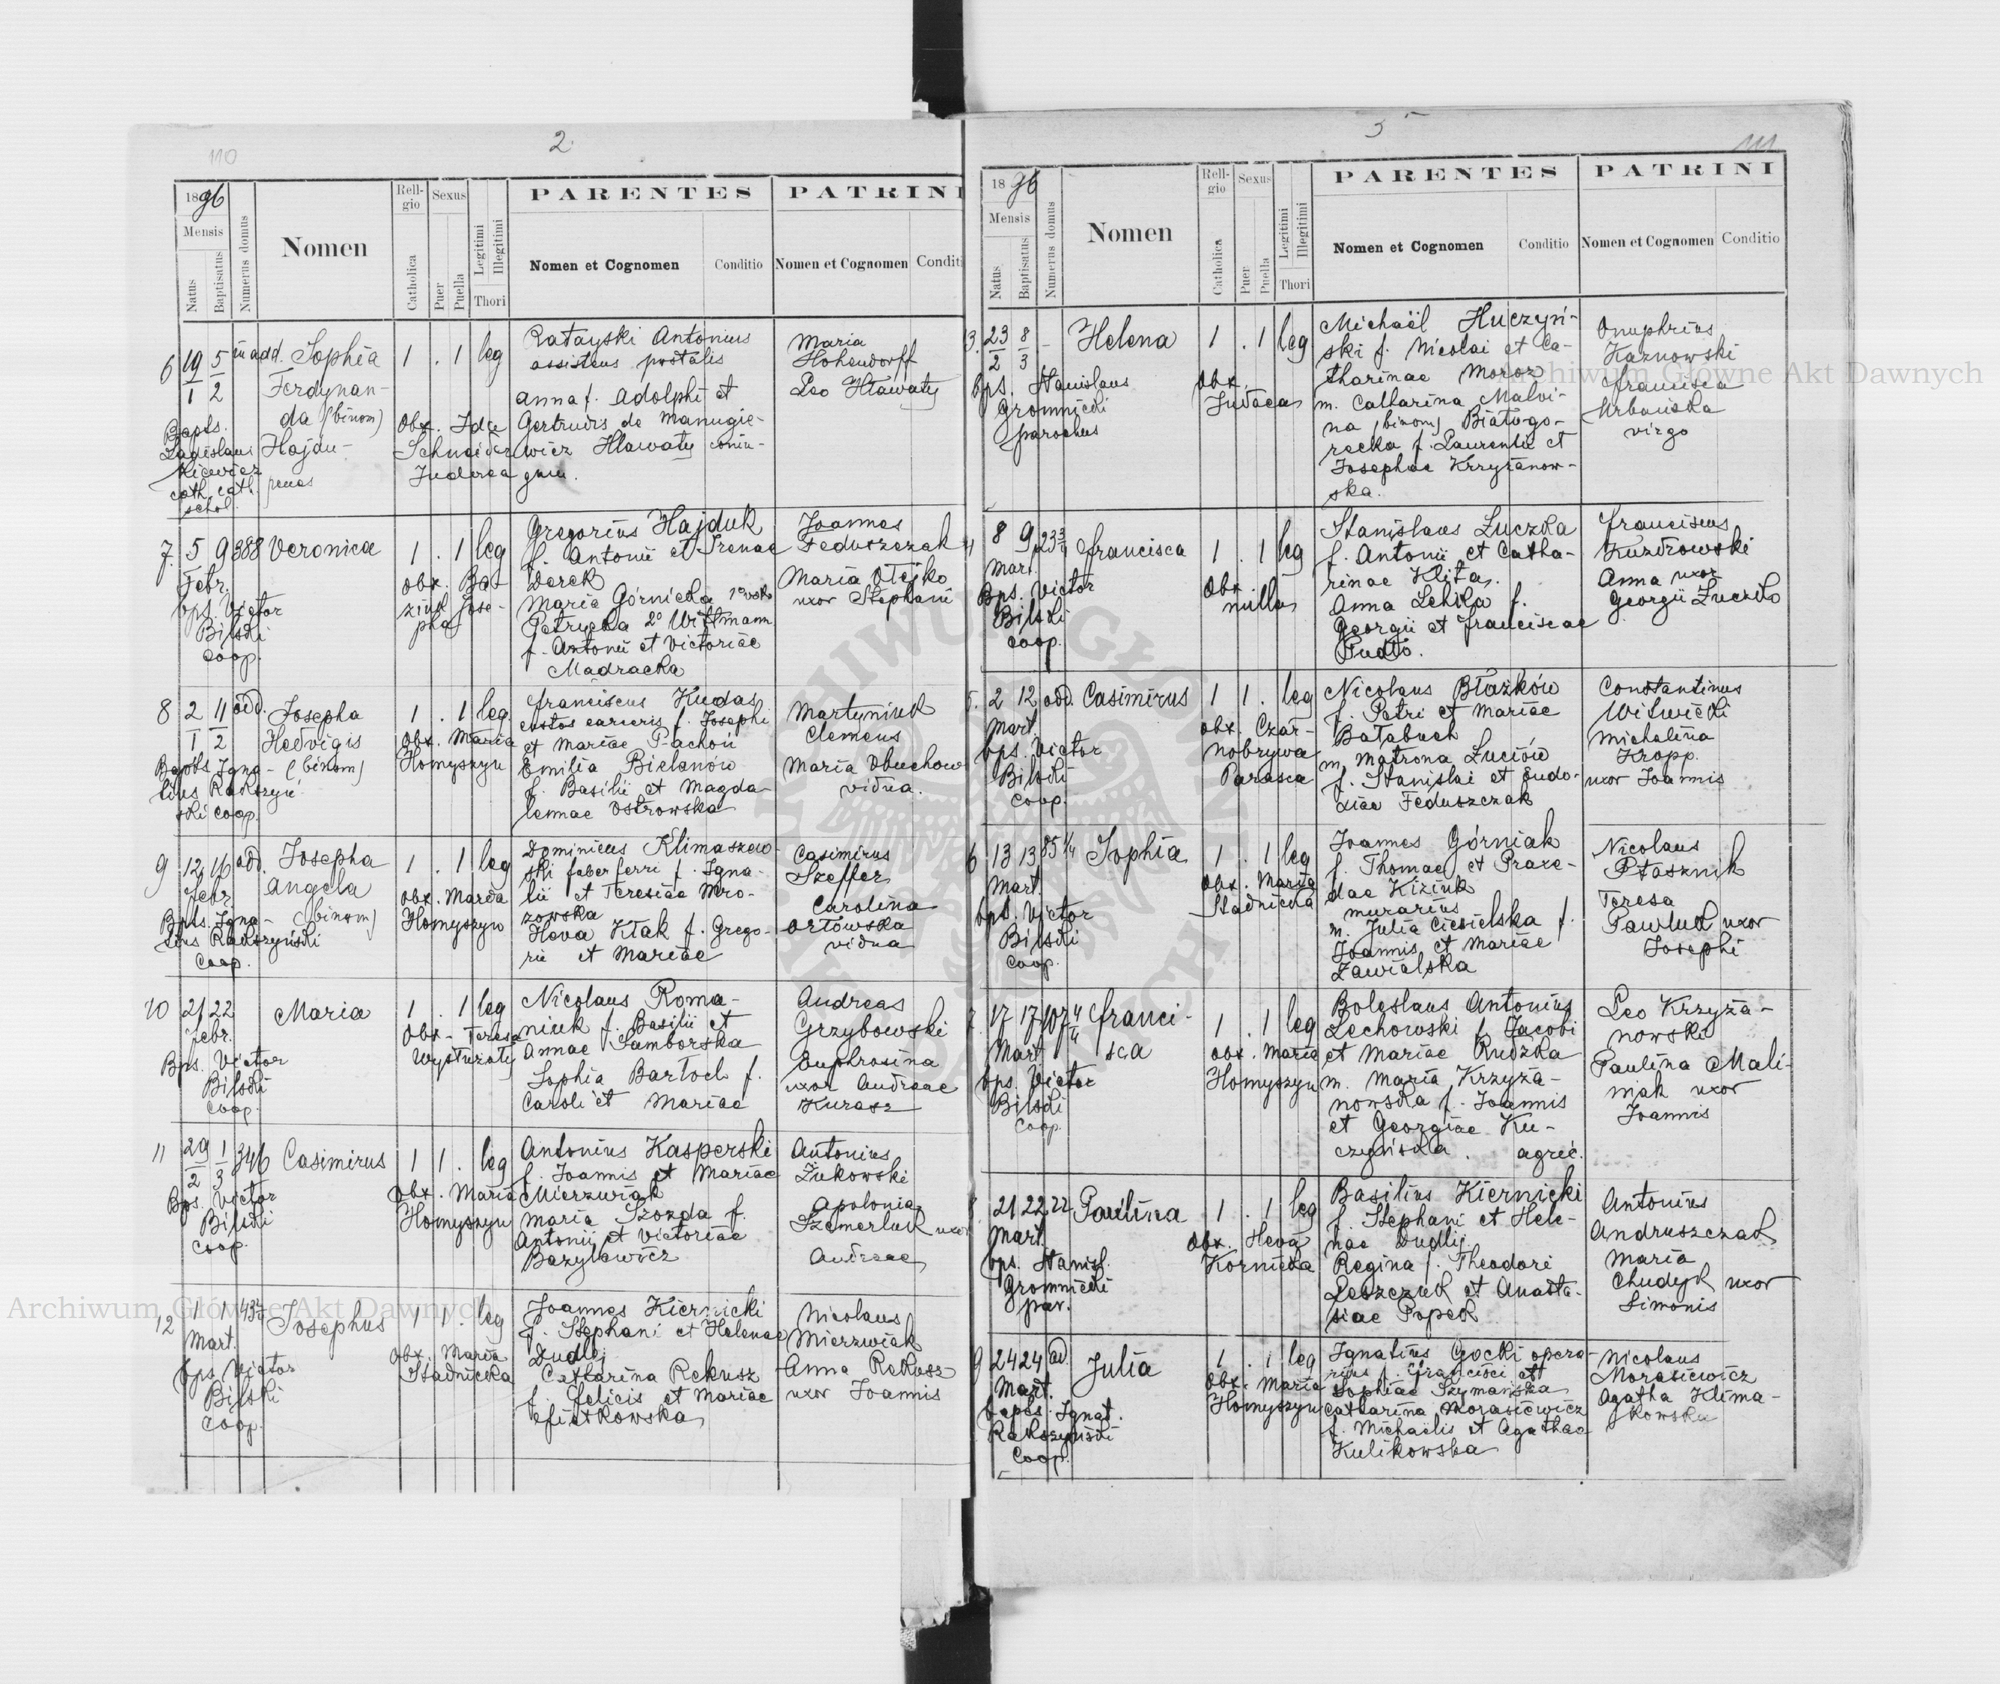 110
2
1896
Mensis
Natus
Baptisatus
Numerus domus
Nomen
Religio
Catholica
Sexus
Puer
Puella
Legitimi
Illegitimi
Thori
PARENTES
Nomen et Cognomen
Conditio
PATRINI
Nomen et Cognomen
Conditi
6 19/1 5/2 in add. Sophia
Ferdynan-
da (binom)
Bapts.
Ladislaus Hajdu-
kiewicz
cath. schol.
1 . 1 leg
Obx. Idae
Schneider
Judaea
Ratayski Antonius
assistens postalis
Anna f. Adolphi et
Gertrudis de Manugie-
wicz Hlawaty coniu-
gum.
Maria
Hohendorff
Leo Hlawaty
7. 5 9 388 Veronica
Febr.
bps. Victor
Bilski
coop.
1 . 1 leg
obx. Ba-
ziuk Jose-
pha
Gregorius Hajduk
f. Antonii et Irenae
Derek
Maria Górnicka 1º voto
Petrycka 2º Wittmann
f. Antonii et Victoriae
Madracka
Joannes
Feduszczak
Maria Olejko
uxor Stephani
8 2/1 11/2 add. Josepha
Hedvigis
(binom)
Bapts. Igna-
tius Rakszyń
ski coop.
1 . 1 leg.
Obx. Maria
Homyszyn
Franciscus Kudas
custos carceris f. Josephi
et Mariae Pachoń
Emilia Bielanów
f. Basilii et Magda
lennae Ostrowska
Martyniuk
Clemens
Maria Obuchow
vidua.
9 12 16 add. Josepha
Febr. Angela
(binom)
Bps. Igna-
tius Rakszyński
Coop.
1 . 1 leg
obx. Maria
Homyszyn
Dominicus Klimaszew-
ski faber ferri f. Igna-
tii et Teresiae Mro-
zowska
Heva Kłak f. Grego-
rii et Mariae
Casimirus
Szeffer
Carolina
Orłowska
vidua
10 21 22 Maria
Febr.
Bps. Victor
Bilski
coop.
1 . 1 leg
Obx. Teresa
Nicolaus Roma-
niuk f. Basilii et
Annae Samborska
Sophia Bartoch f.
Caroli et Mariae
Andreas
Grzybowski
Euphrosina
uxor Andreae
Kurasz
11 29/2 1/3 346 Casimirus
Bps. Victor
Bilski
coop.
1 1 . leg
Obx. Maria
Homyszyn
Antonius Kasperski
f. Joannis et Mariae
Mierzwiak
Maria Szozda f.
Antonii et Victoriae
Bazylewicz
Antonius
Żukowski
Apolonia
Szemerluk uxor
Andreae
12 1 1 Josephus
Mart.
bps. Victor
Bilski
coop.
1 1 . leg
Obx. Maria
Stadnicka
Joannes Kiernicki
f. Stephani et Helenae
Dudlej
Catharina Rekusz
f. Felicis et Mariae
Nicolaus
Mierzwiak
Anna Rekusz
uxor Joannis
111
3
1896
Mensis
Natus
Baptisatus
Numerus domus
Nomen
Religio
Catholica
Sexus
Puer
Puella
Legitimi
Illegitimi
Thori
PARENTES
Nomen et Cognomen
Conditio
PATRINI
Nomen et Cognomen
Conditio
3. 23/2 8/3 – Helena
bps. Stanislaus
Gromnicki
parochus
1 . 1 leg
Obx.
Judaea
Michaël Huczyń-
ski f. Nicolai et Ca-
tharinae Moroz
m. Catharina Malvi-
na (binom) Białogo-
recka f. Laurentii et
Josephae Krzyżanow-
ska.
Onuphrius
Kaznowski
Francisca
Urbańska
virgo
4 8 9 Francisca
Mart.
Bps. Victor
Bilski
coop.
1 . 1 leg
Obx.
nulla
Stanislaus Łuczka
f. Antonii et Catha-
rinae Klita.
Anna Lehka f.
Georgii et Franciscae
Pudło.
Franciscus
Kuzdrowski
Anna uxor
Georgii Łuczko
5. 2 12 add. Casimirus
Mart.
bps. Victor
Bilski
coop.
1 1 . leg
Obx. Czar-
nobrywa
Parasca
Nicolaus Błażków
f. Petri et Mariae
Bałabuch
m. Matrona Łuciów
f. Stanislai et Eudo-
xiae Feduszczak
Constantinus
Witwicki
Michalina
Kropp.
uxor Joannis
6 13 13 85 1/4 Sophia
Mart.
bps. Victor
Bilski
coop.
1 . 1 leg
Obx. Maria
Stadnicka
Joannes Górniak
f. Thomae et Praxe-
dae Kiziuk
murarius
m. Julia Ciesielska f.
Joannis et Mariae
Zawialska
Nicolaus
Ptasznik
Teresa
Pawluk uxor
Josephi
7. 17 17 Franci-
Mart. sca
bps. Victor
Bilski
Coop.
1 . 1 leg
Obx. Maria
Homyszyn
Boleslaus Antonius
Lechowski f. Jacobi
et Mariae Rudzka
m. Maria Krzyża-
nowska f. Joannis
et Georgiae Ku-
czyńska. agric.
Leo Krzyża-
nowski
Paulina Mali-
niak uxor
Joannis
8 21 22 22 Paulina
Mart.
bps. Stanisl.
Gromnicki
par.
1 . 1 leg
Obx. Heva
Kornicka
Basilius Kiernicki
f. Stephani et Hele-
nae Dudlij
Regina f. Theodori
Leszczuk et Anasta-
siae Popek
Antonius
Andruszczak
Maria
Chudyk uxor
Simonis
9 24 24 ad. Julia
Mart.
bapts. Ignat.
Rakszyński
Coop.
1 . 1 leg
Obx. Maria
Homyszyn
Ignatius Gocki opera-
rius f. Francisci et
Sophiae Szymańska
Catharina Morasiewicz
f. Michaelis et Agathae
Kulikowska
Nicolaus
Morasiewicz
Agatha Klima-
kowska
Archiwum Główne Akt Dawnych
Archiwum Główne Akt Dawnych
ARCHIWUM GŁÓWNE AKT DAWNYCH